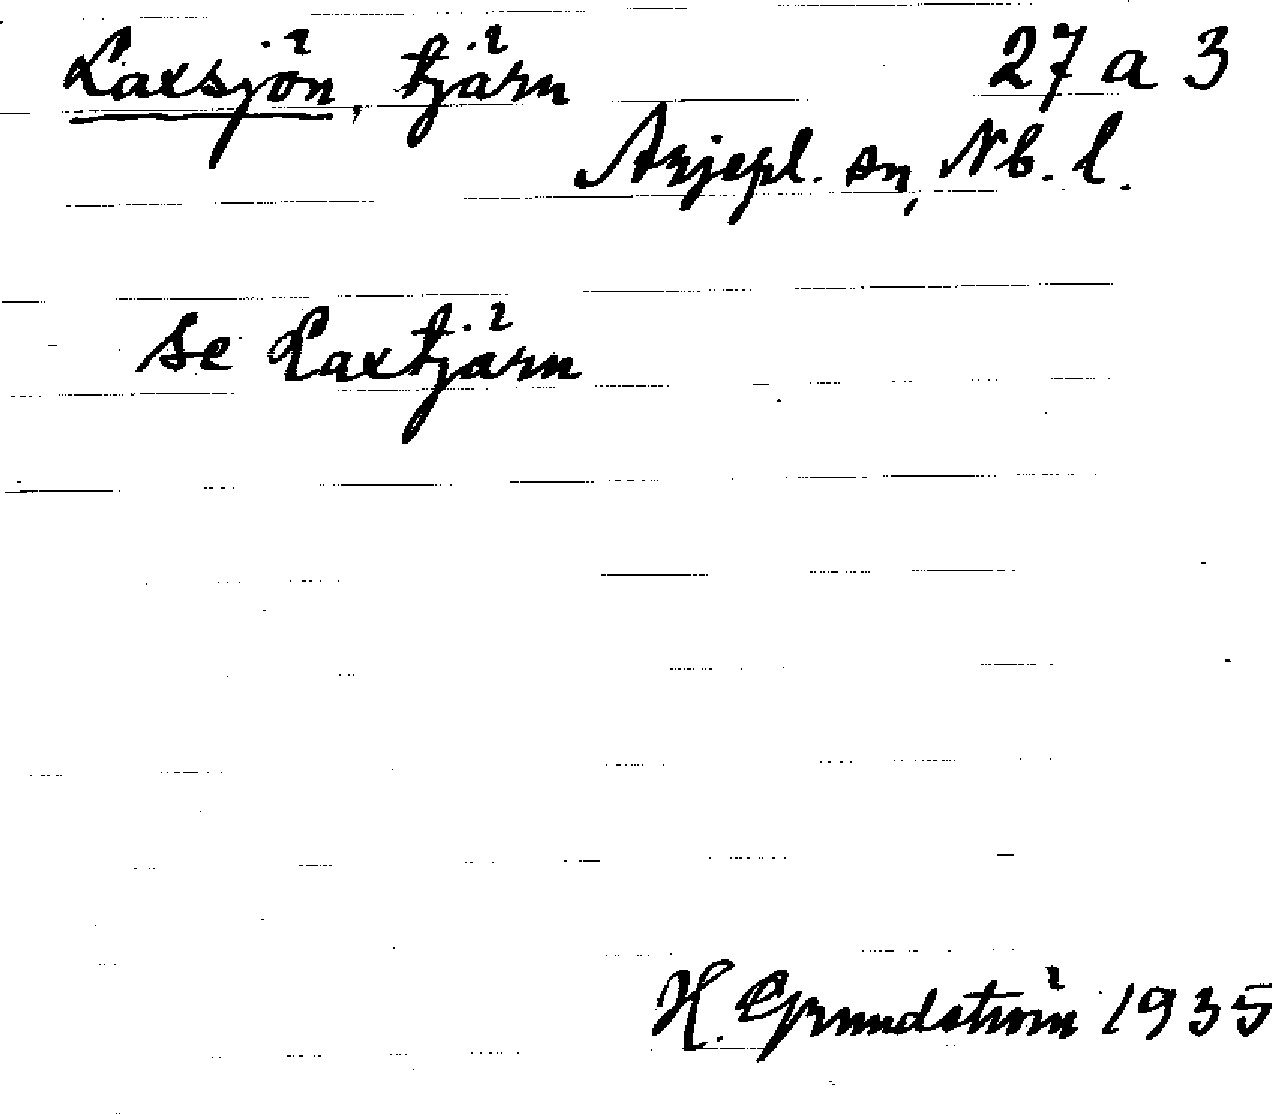 Laxsjön, tjärn 27 a 3
Arjepl. sn, Nb. l.
se Laxtjärn
H. Grundström 1935